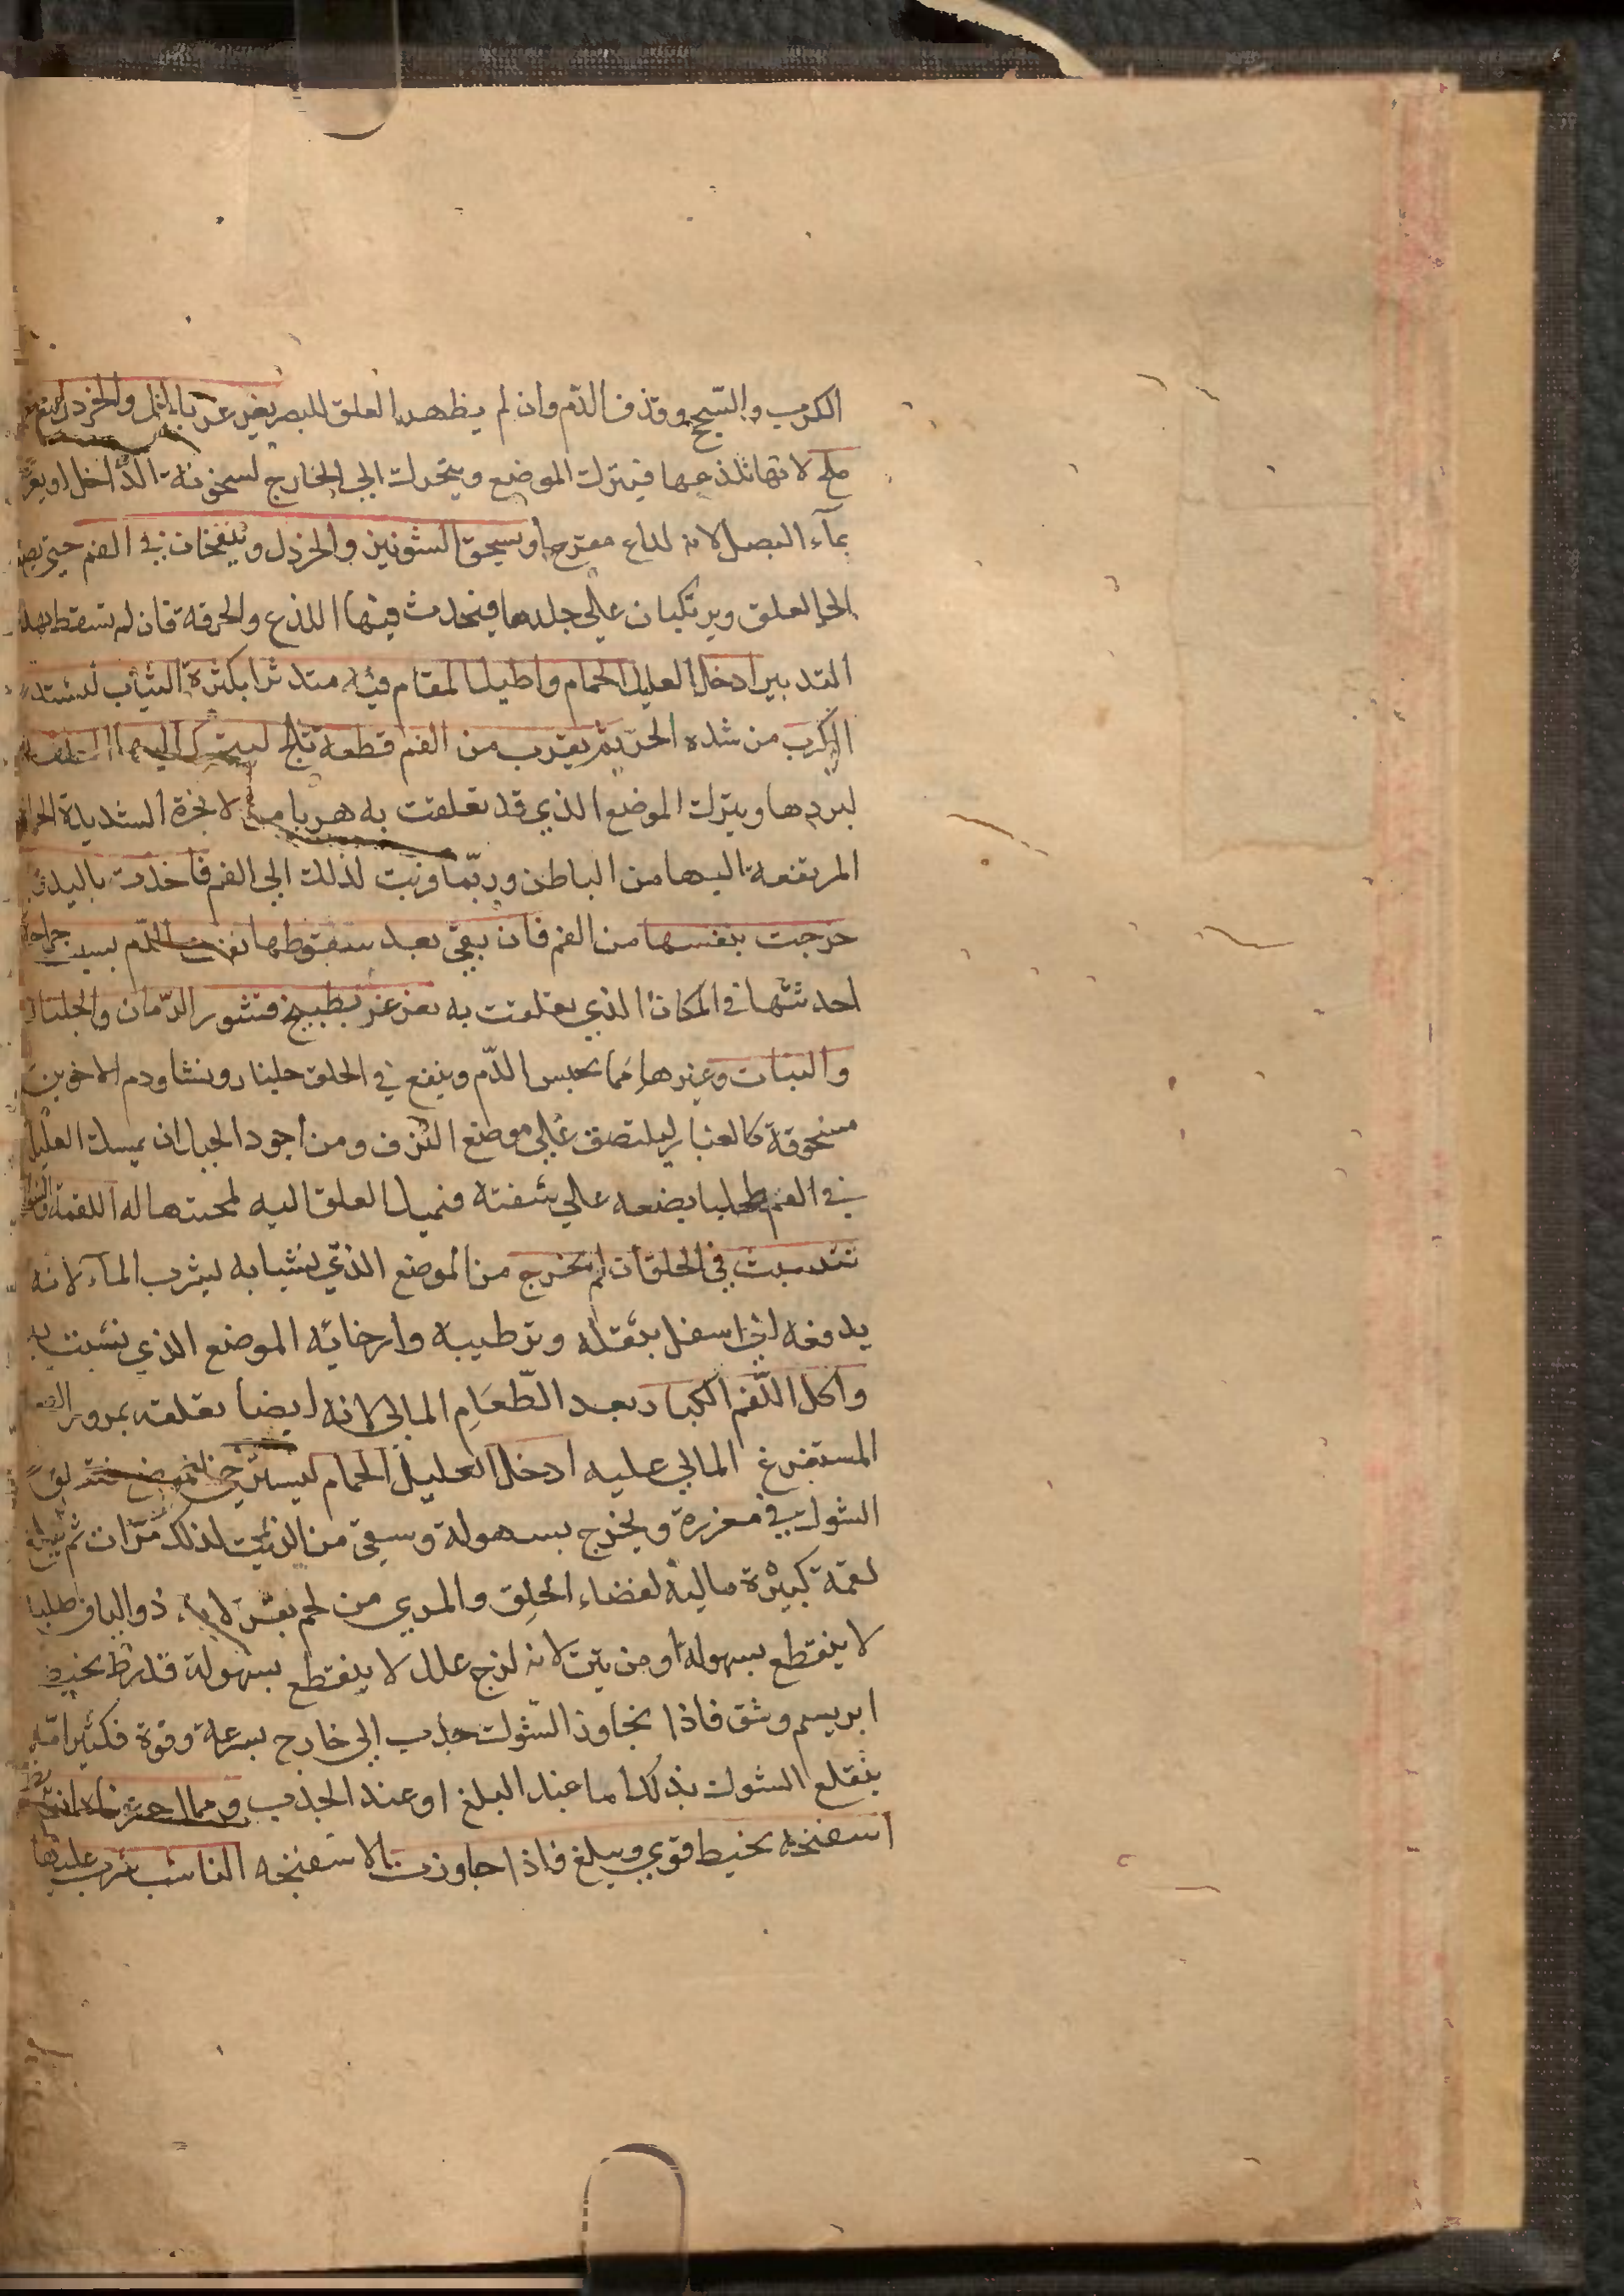 الكرب والسحج وقذف الدم وان لم يظهر العلق للبصر يغرغر بالخل والخردل
ملح لانها تلذعها فيترك الموضع ويتحرك الى الخارج لسخونة الداخل او يغر
بماء البصل لانه لداع مقرح او يسحق الشونيز والخردل وينفخان في الفم حتى
الى العلق ويرتكبان على جلدها فيحدث فيها اللذع والحرقة فان لم تسقط بهذا
التدبير ادخل العليل الحمام واطيل المقام فيه متدثرا بكثرة الثياب ليشتد
الكرب من شدة الحر ثم يقرب من الفم قطعة ثلج ليتحرك اليها
لبردها ويترك الموضع الذي قد تعلقت به هربا من الابخرة الشديدة
المرتفعة اليها من الباطن وربما وربت لذلك الى الفم فاخذت باليد او
خرجت بنفسها من الفم فان بقي بعد سقوطها نفث الدم بسبب جراحة
احدثتها في المكان الذي تعلقت به يغرغر بطبيخ قشور الرمان والجلنار
والنبات وغيرها مما يحبس الدم وينفخ في الحلق جلنار ونشا ودم الاخوين
مسحوقة كالغبار ليلتصق على موضع النزف ومن اجود الحيل ان يمسك العليل
في الفم طحلبا يضعه على شفته فيميل العلق اليه لمحبتها له اللقمة
نشبت في الحلق ان لم تخرج من الموضع الذي نشبا به ليشرب الماء لانه
يدفعه الى اسفل بثقله وترطيبه وارخائه الموضع الذي نشبت به
واكل اللقم الكبار بعد الطعام المالي لانه ايضا يقلعه بمرور
المستفرغ المالي عليه ادخل العليل الحمام ليسترخي
الشوك في مغرزه ويخرج بسهولة وسقي من الزيت لذلك مرات ثم يبلع
لقمة كبيرة مالية لفضاء الحلق والمري من لحم بقر لانه ذو الياف
لا ينقطع بسهولة او من تين لانه لزج علك لا ينقطع بسهولة قد ربط بخيط
ابريسم وثق فاذا تجاوز الشوك جذب الى خارج بسرعة وقوة فكثيرا ما
ينقلع الشوك بذلك اما عند البلع او عند الجذب ومما جربناه
اسفنجه بخيط قوي ويبلع فاذا جاوزت الاسفنجه الناشب شرب عليها